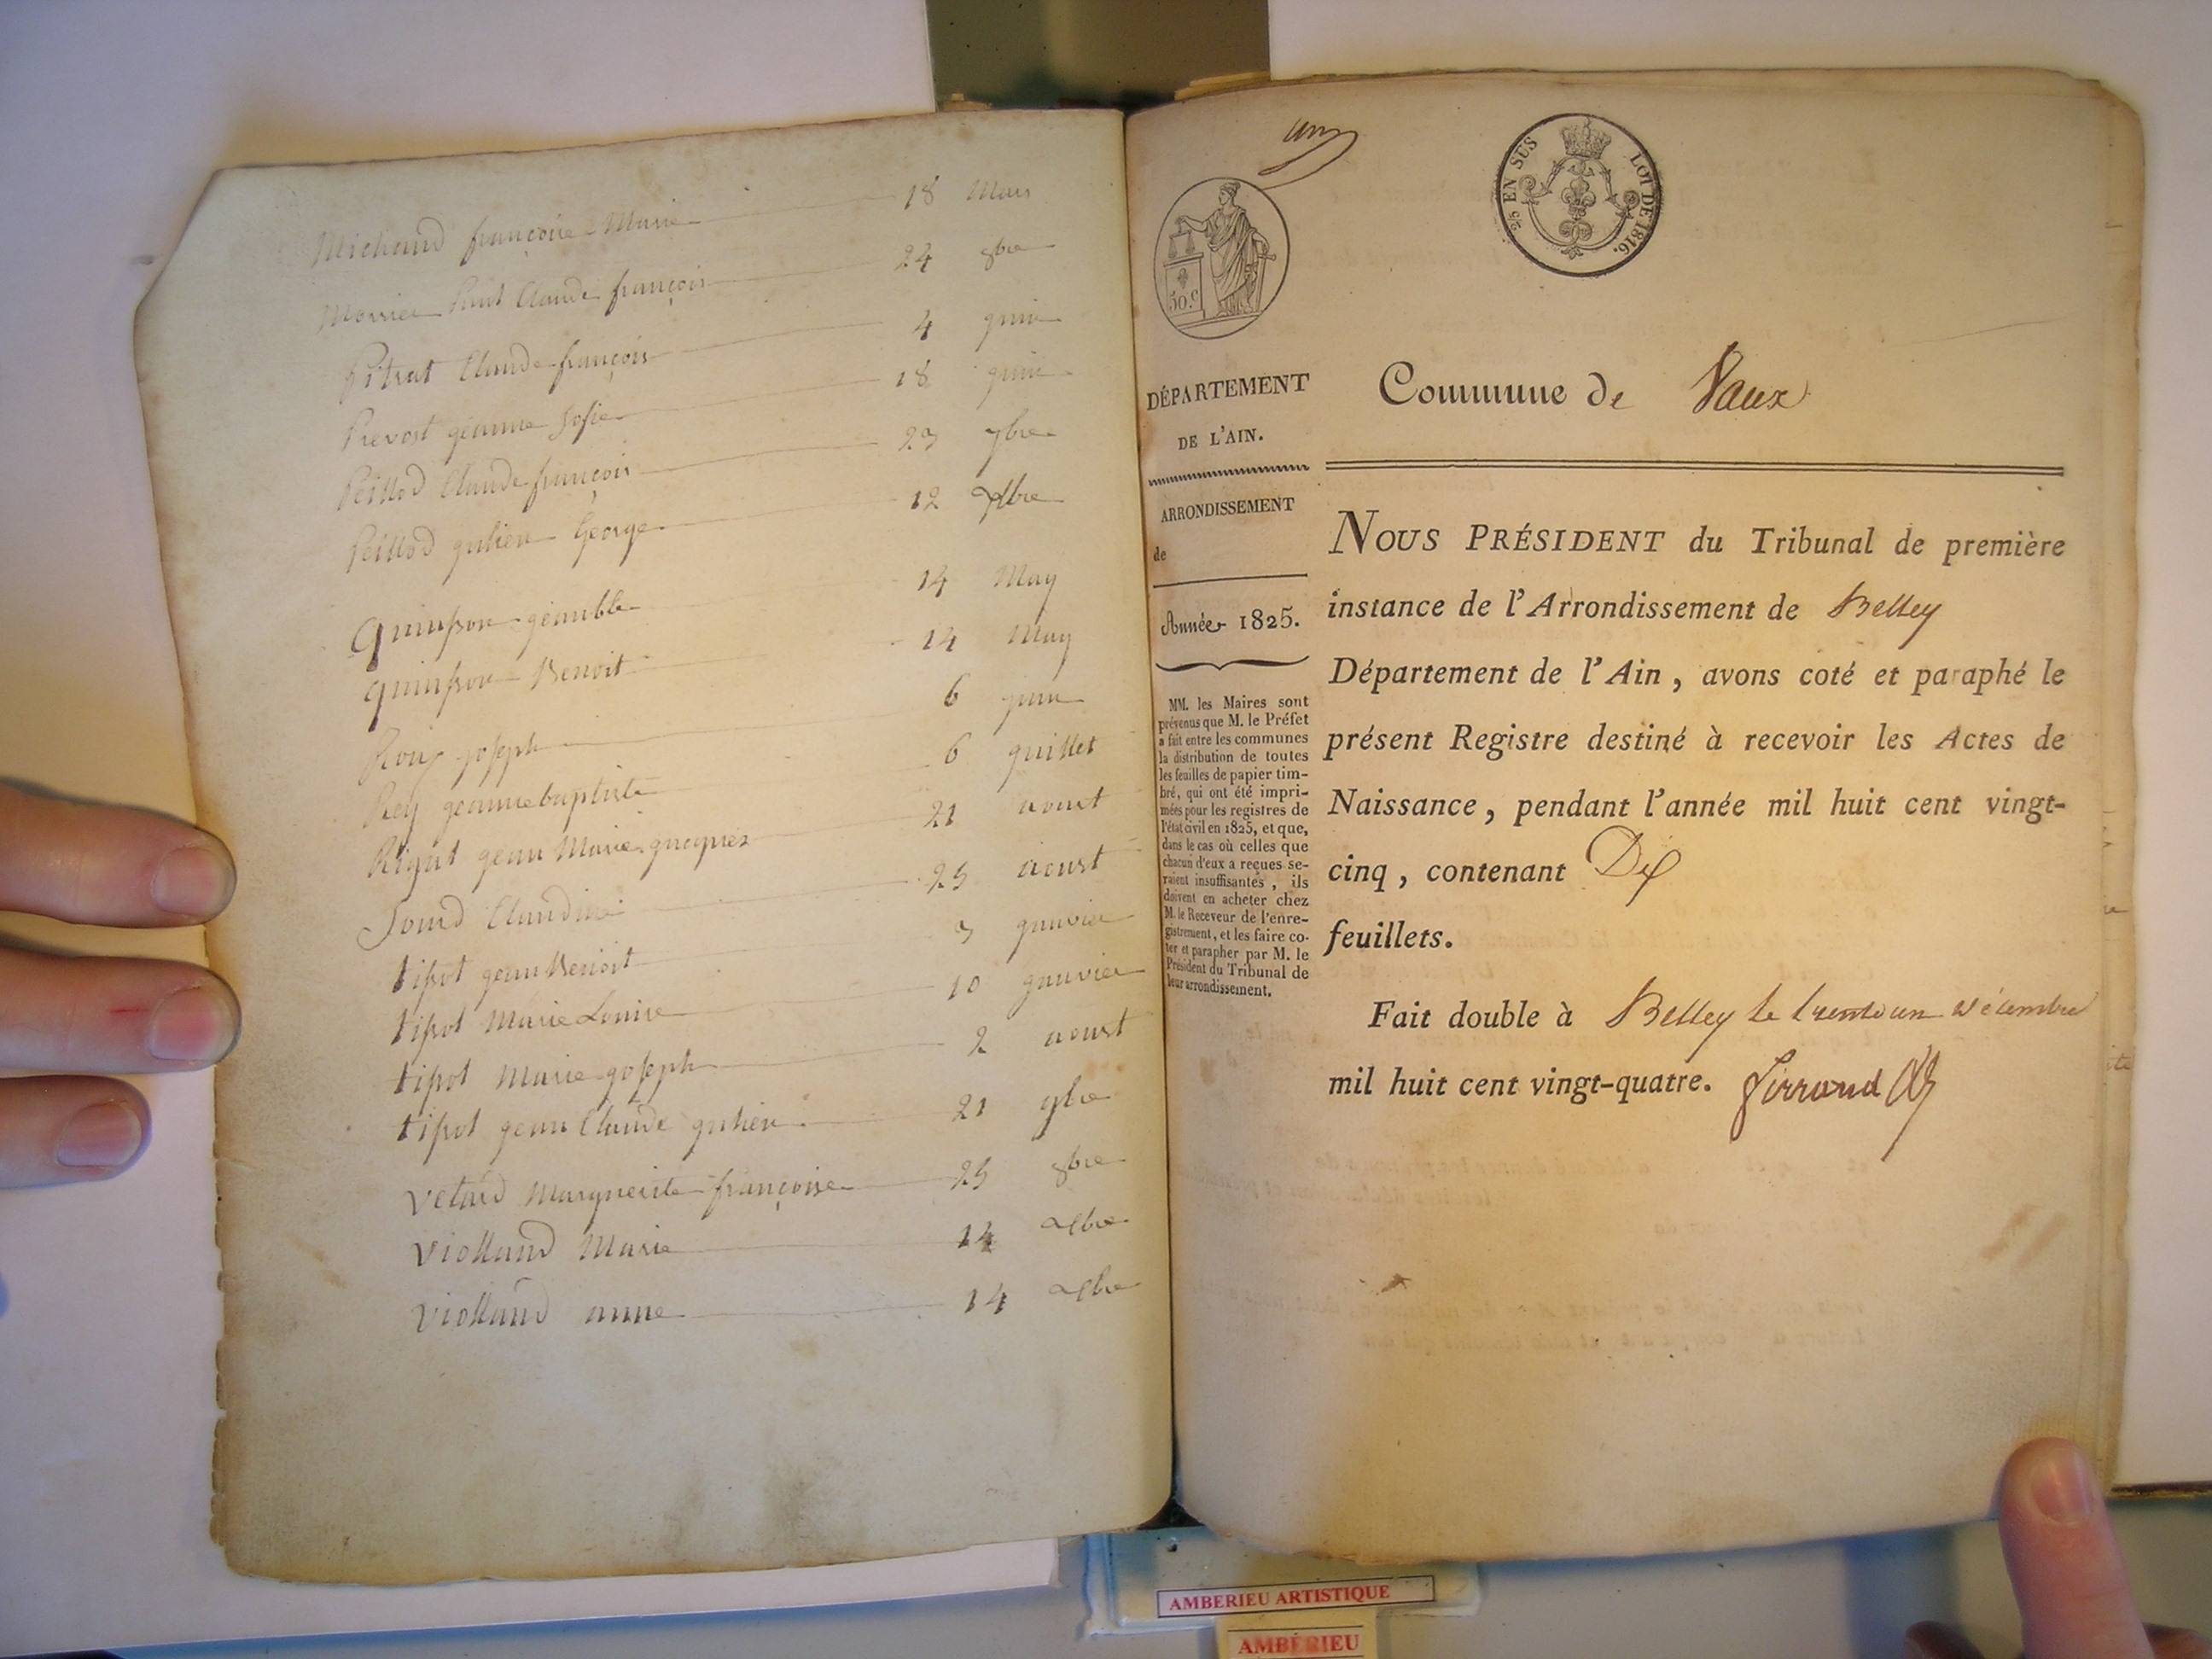 Michaud françoise Marie 18 Mars
Morrier Paul Claude françois 24 8bre
Pitrat Claude françois 4 guin
Prevost geanne Sofie 18 guin
Peillod Claude françois 23 7bre
Peillod gulien George 12 Xbre
quinson geanble 14 May
quinson Benoit 14 May
Roux joseph 6 juin
Rey geanne baptiste 6 guillet
Rigat gean Marie gacques 21 aoust
Sourd Claudine 25 aoust
tipot gean Benoit 3 ganvier
tipot Marie Louise 10 ganvier
tipot Marie goseph 2 aoust
tipot gean Claude gulien 21 9bre
Vetard Marguerite françoise 25 8bre
Violland Marie 14 Xbre
Violland anne 14 Xbre
un
2/10 EN SUS LOI DE 1816.
50.c
DÉPARTEMENT
DE L'AIN.
ARRONDISSEMENT
de
Année 1825.
MM. les Maires sont
prévenus que M. le Préfet
a fait entre les communes
la distribution de toutes
les feuilles de papier tim-
bré, qui ont été impri-
mées pour les registres de
l'état civil en 1825, et que,
dans le cas où celles que
chacun d'eux a reçues se-
raient insuffisantes, ils
doivent en acheter chez
M. le Receveur de l'enre-
gistrement, et les faire co-
ter et parapher par M. le
Président du Tribunal de
leur arrondissement.
Commune de Vaux
NOUS PRÉSIDENT du Tribunal de première
instance de l'Arrondissement de Belley
Département de l'Ain, avons coté et paraphé le
présent Registre destiné à recevoir les Actes de
Naissance, pendant l'année mil huit cent vingt-
cinq, contenant Dix
feuillets.
Fait double à Belley le trente un décembre
mil huit cent vingt-quatre. Ferrand
AMBERIEU ARTISTIQUE
AMBÉRIEU